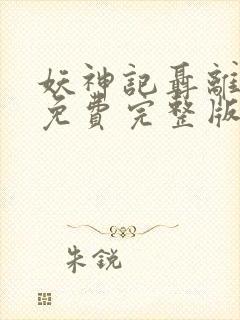 妖神記聶離
免費完整版
朱銳